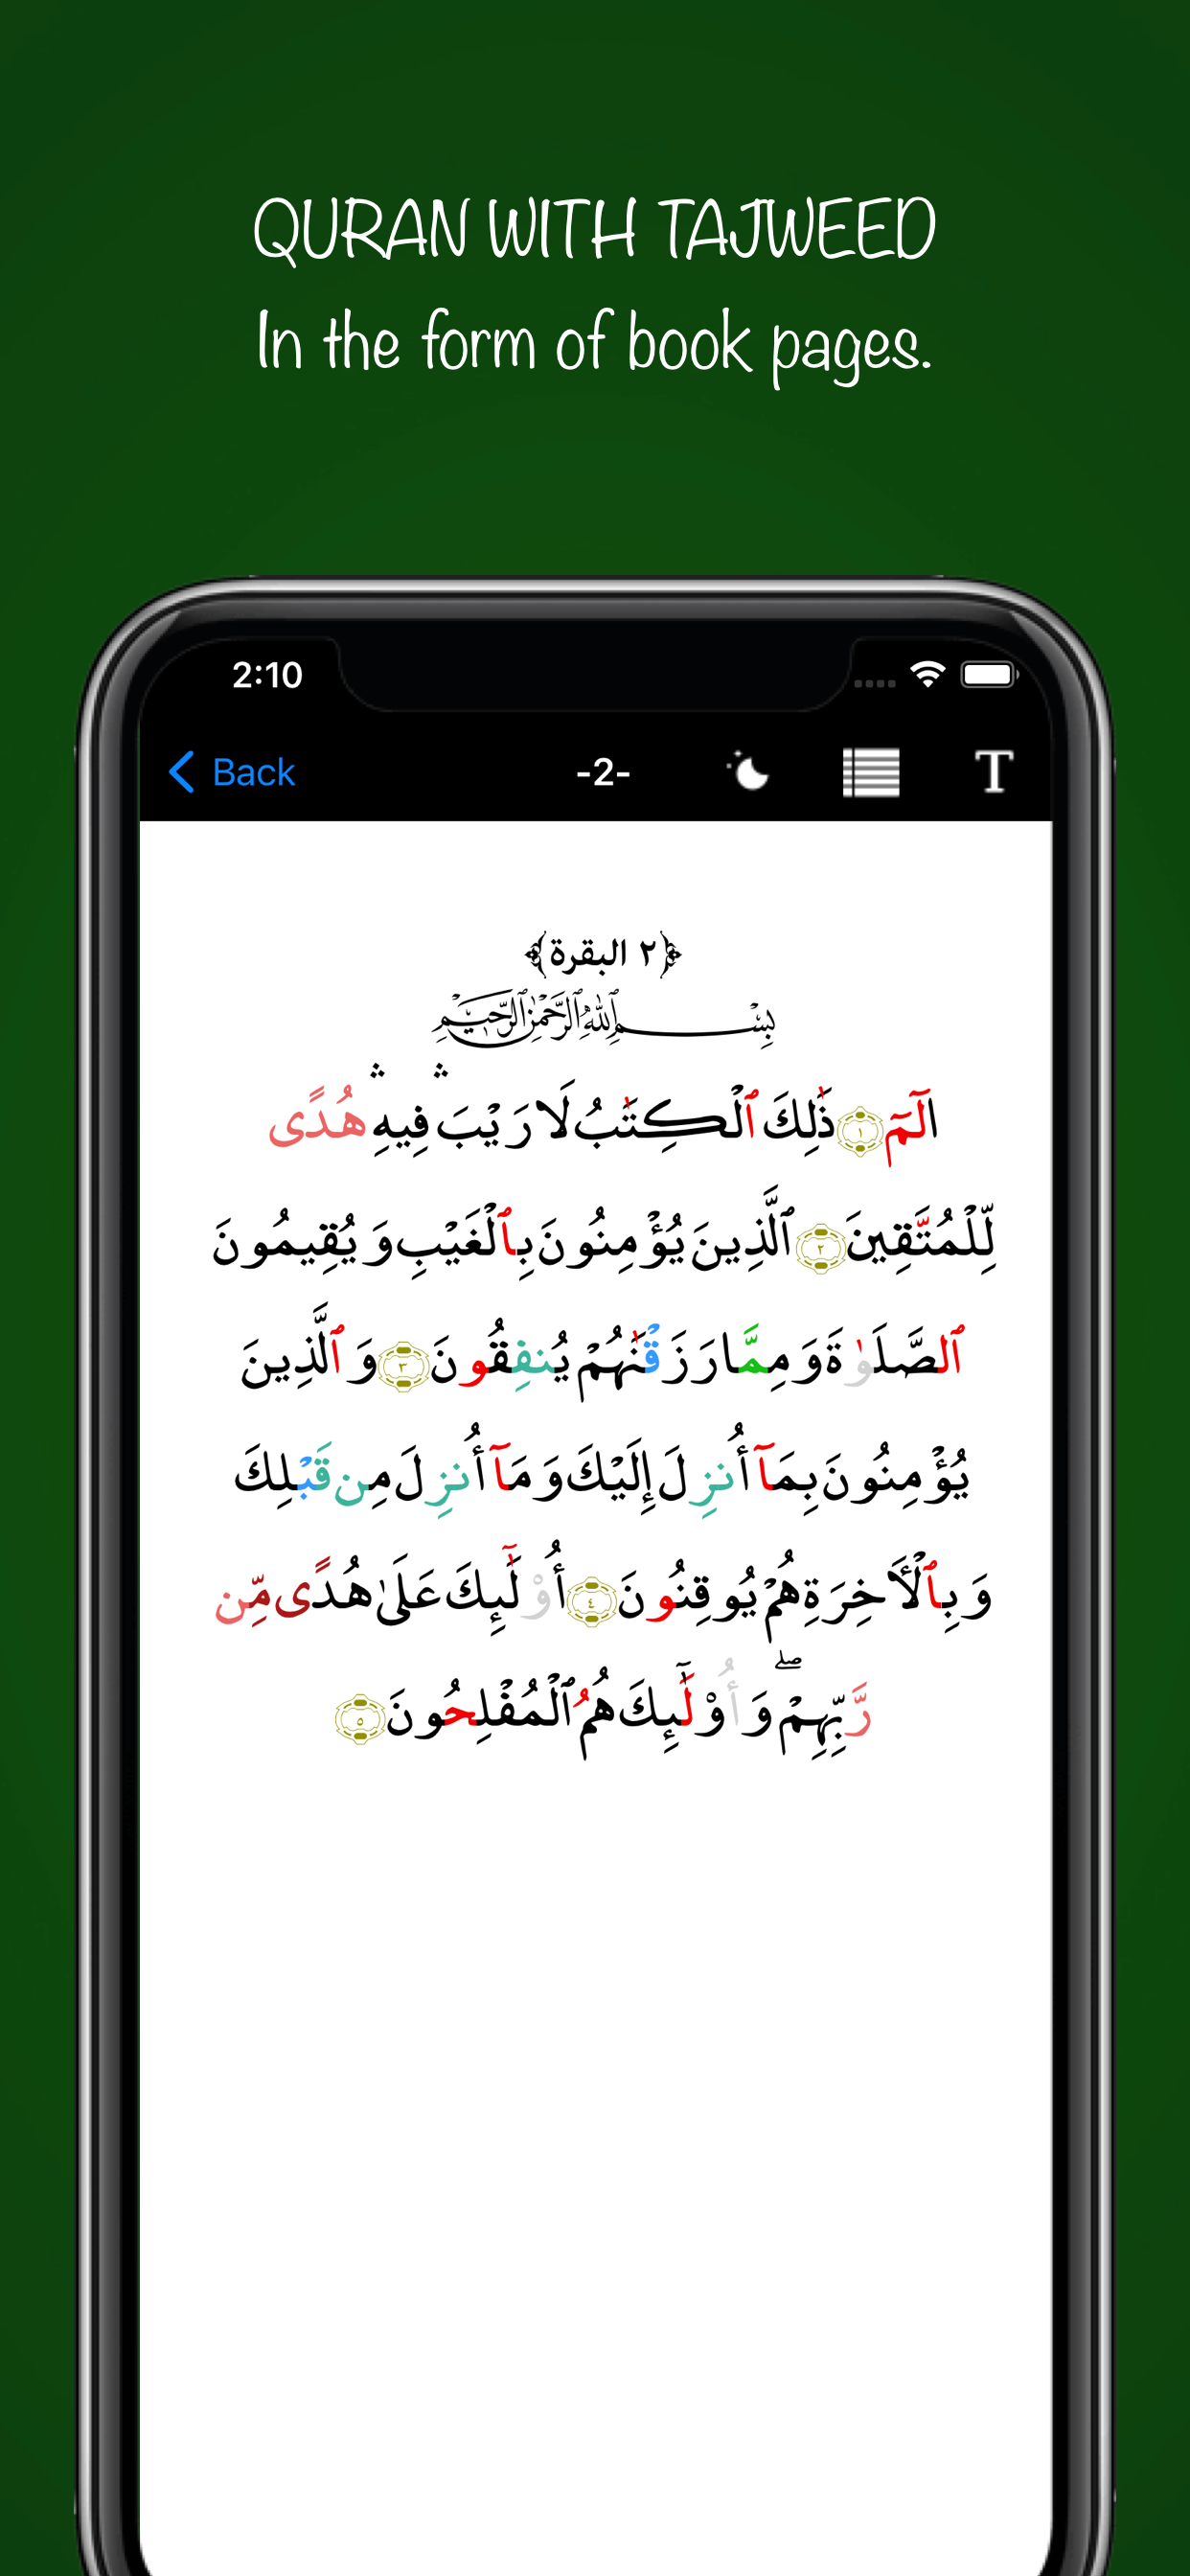 QURAN WITH TAJWEED
In the form of book pages.
2:10
Back
-2-
T
﴿٢ البقرة﴾
بِسْمِ ٱللَّهِ ٱلرَّحْمَٰنِ ٱلرَّحِيمِ
الٓمٓ ١ ذَٰلِكَ ٱلْكِتَٰبُ لَا رَيْبَ ۛ فِيهِ ۛ هُدًى
لِّلْمُتَّقِينَ ٢ ٱلَّذِينَ يُؤْمِنُونَ بِٱلْغَيْبِ وَيُقِيمُونَ
ٱلصَّلَوٰةَ وَمِمَّا رَزَقْنَٰهُمْ يُنفِقُونَ ٣ وَٱلَّذِينَ
يُؤْمِنُونَ بِمَآ أُنزِلَ إِلَيْكَ وَمَآ أُنزِلَ مِن قَبْلِكَ
وَبِٱلْأَخِرَةِ هُمْ يُوقِنُونَ ٤ أُوْلَٰٓئِكَ عَلَىٰ هُدًى مِّن
رَّبِّهِمْ ۖ وَأُوْلَٰٓئِكَ هُمُ ٱلْمُفْلِحُونَ ٥